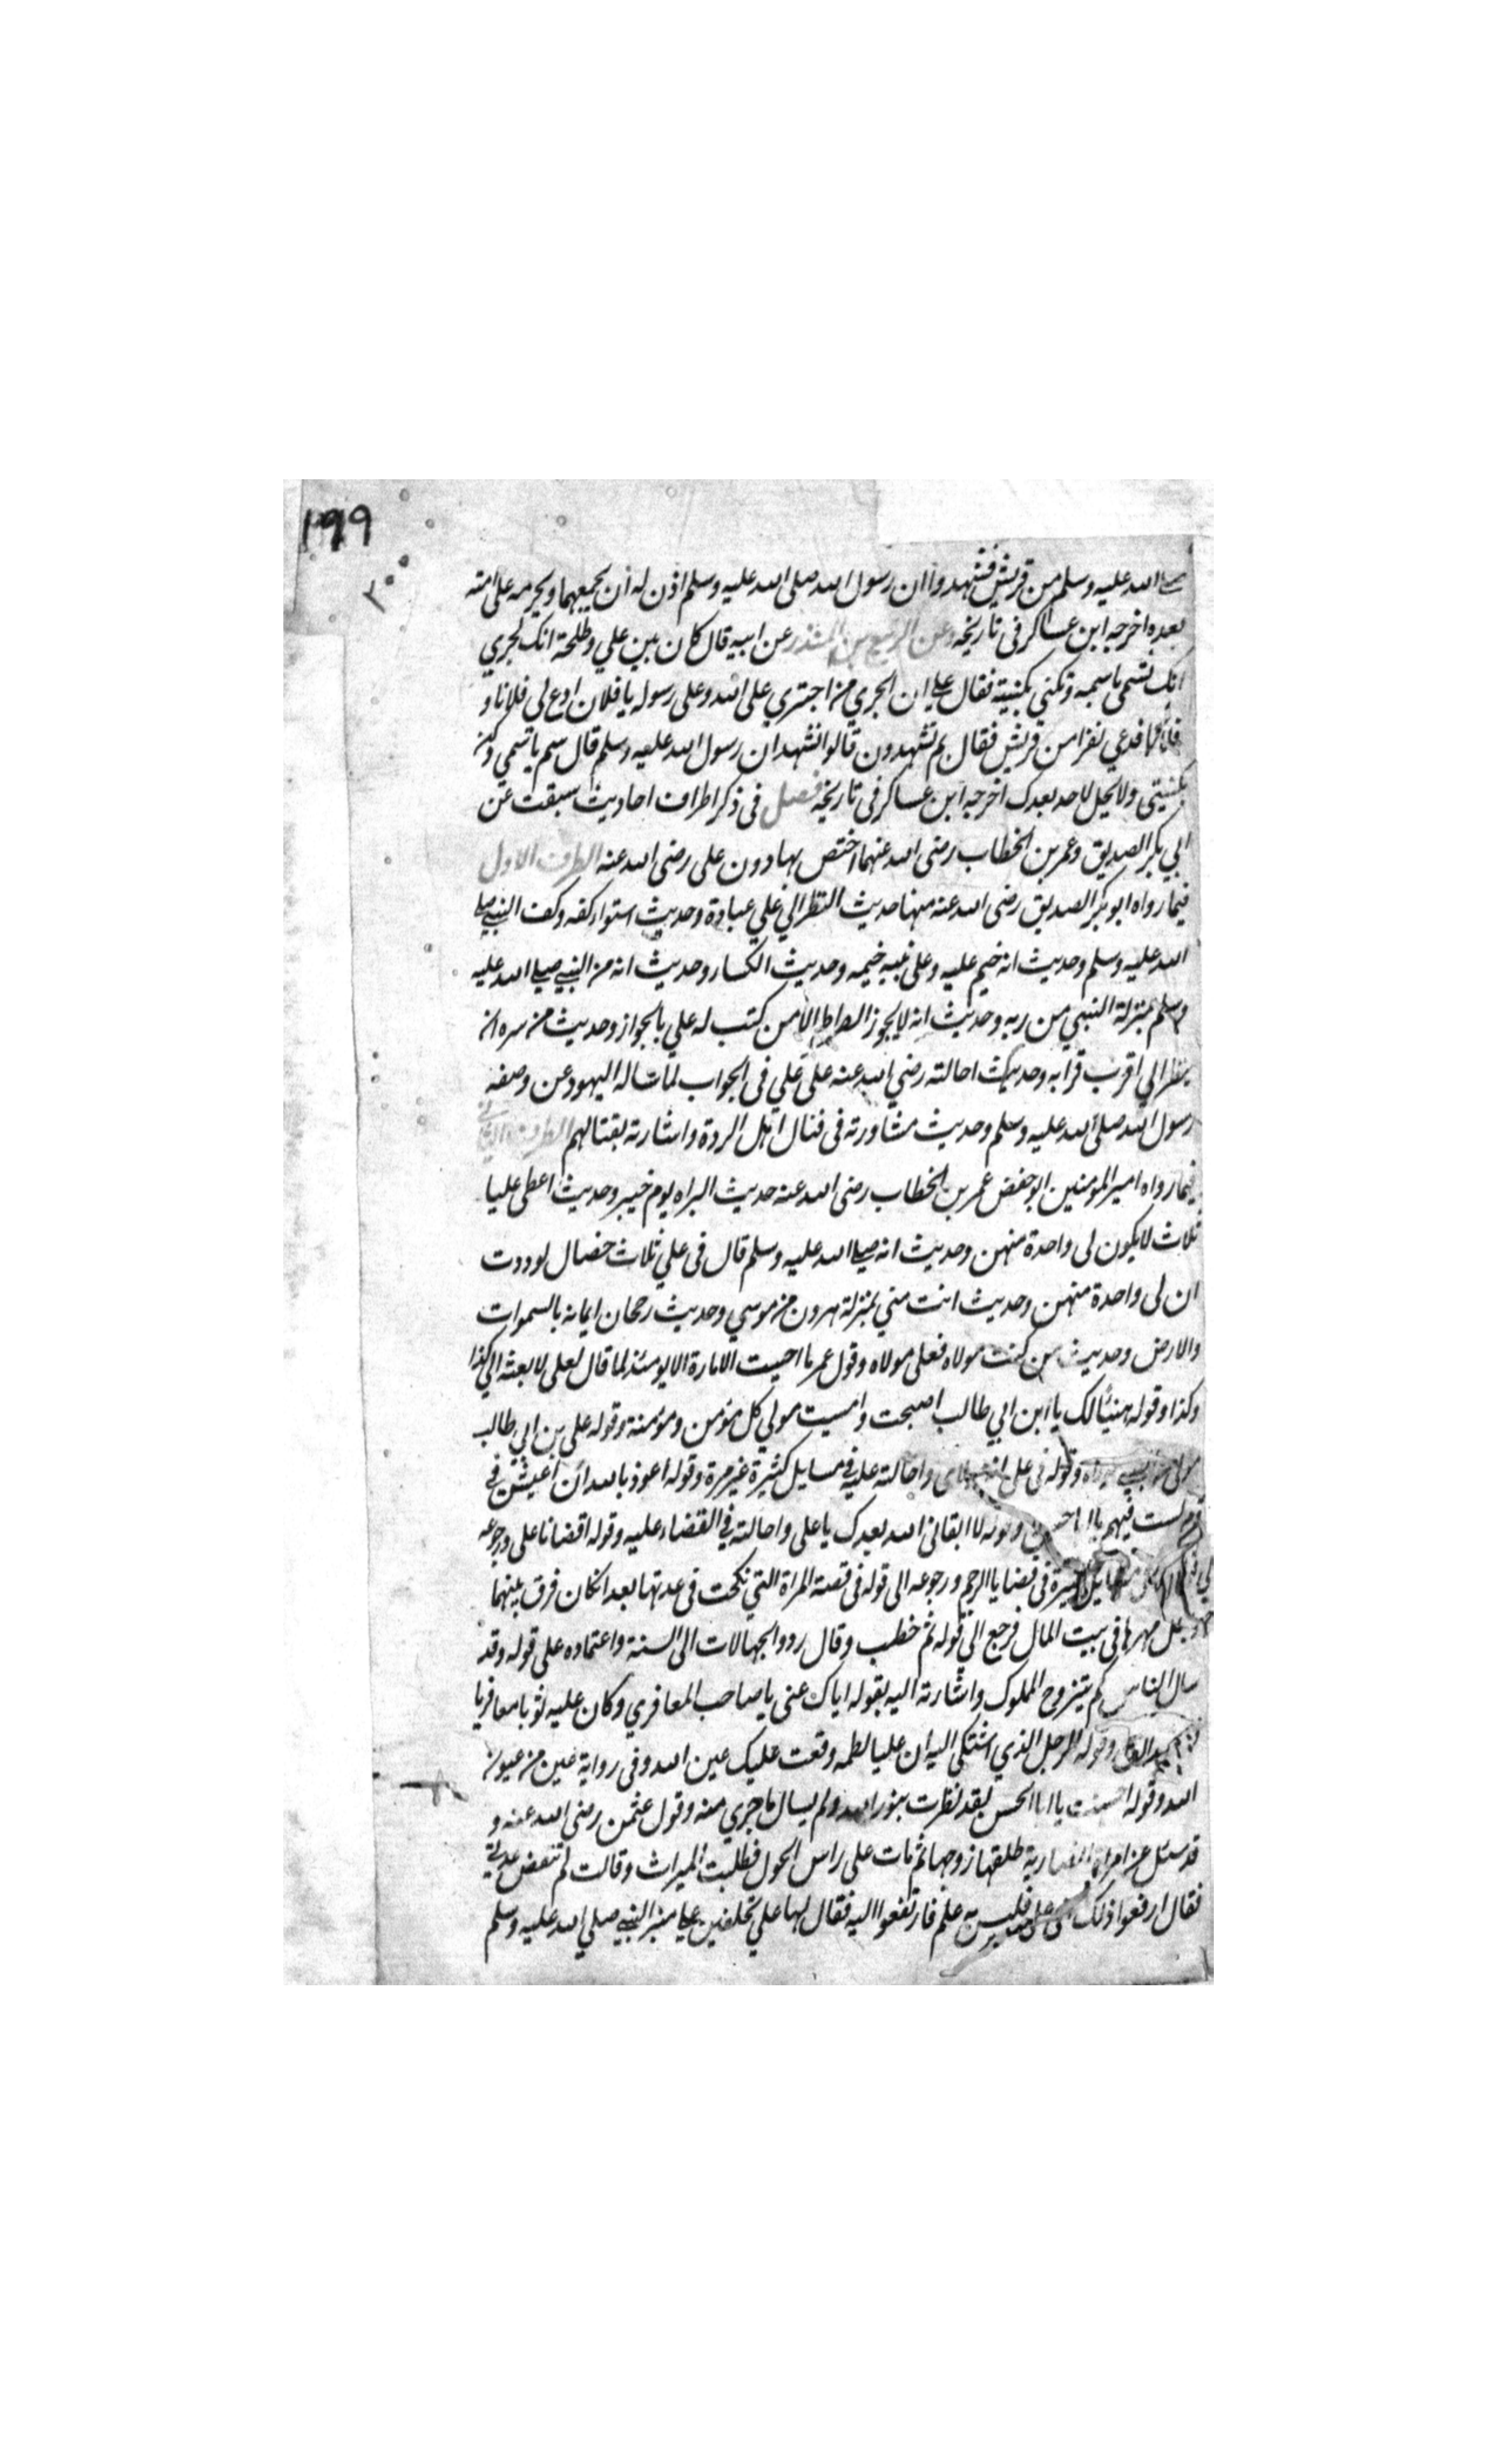 ١٩٩
صلى الله عليه وسلم من قريش فشهدوا ان رسول الله صلى الله عليه وسلم اذن له ان يجمعهما ويحرمه على امته
بعده اخرجه ابن عساكر فى تاريخه وعن الربيع بن المنذر عن ابيه قال كان بين علي وطلحة انك لجري
انك تسمى باسمه وتكني بكنيته فقال علي ان الجري من اجتري على الله وعلى رسوله يا فلان ادع لى فلانا و
فلانا فدعي نفرا من قريش فقال بم تشهدون قالوا نشهد ان رسول الله عليه وسلم قال سم باسمى وكن
بكنيتي ولا يحل لاحد بعدك اخرجه ابن عساكر فى تاريخه فصل فى ذكر اطراف احاديث سبقت عن
ابي بكر الصديق وعمر بن الخطاب رضى الله عنهما اختص بها دون على رضى الله عنه الطرف الاول
فيما رواه ابو بكر الصديق رضى الله عنه منها حديث النظر الي علي عبادة وحديث استواء كفه وكف النبي صلى
الله عليه وسلم وحديث انه خيم عليه وعلى بنيه خيمه وحديث الكسار وحديث انه من النبي صلى الله عليه
وسلم بمنزلة النبي من ربه وحديث انه لا يجوز الصراط الا من كتب له علي بالجواز وحديث من سره ان
ينظر الي اقرب قرابه وحديث احالته رضي الله عنه على علي فى الجواب لما ساله اليهود عن وصفه
رسول الله صلى الله عليه وسلم وحديث مشاورته فى قتال اهل الردة واشارته بقتالهم الطرف الثاني
فيما رواه امير المؤمنين ابو حفص عمر بن الخطاب رضى الله عنه حديث الراه يوم خيبر وحديث اعطى عليا
ثلاث لا يكون لى واحدة منهن وحديث انه صلى الله عليه وسلم قال فى علي ثلاث خصال لوددت
ان لى واحدة منهن وحديث انت مني بمنزلة هرون من موسي وحديث رجحان ايمانه بالسموات
والارض وحديث من كنت مولاه فعلى مولاه وقول عمر ما احببت الامارة الا يومئذ لما قال لعلى لابعثه الي كذا
وكذا وقوله هنيئا لك يا ابن ابي طالب اصبحت وامسيت مولي كل مؤمن ومؤمنة وقوله على بن ابي طالب
مولى من النبي مولاه وقوله فى على انه مولاى واحالته عليه فى مسايل كثيرة غير مرة وقوله اعوذ بالله ان اعيش في
قوم لست فيهم يا ابا حسن وقوله لا ابقانى الله بعدك يا على واحالته في القضاء عليه وقوله اقضانا على ورجوعه
الى مسايل كثيرة فى قضايا الرجم ورجوعه الى قوله فى قصة المراة التي نكحت فى عدتها بعد ان كان فرق بينهما
وجعل مهرها فى بيت المال فرجع الي قوله ثم خطب وقال ردوا الجهالات الى السنة واعتماده على قوله وقد
سال الناس كم يتزوج المملوك واشارته اليه بقوله اياك عنى يا صاحب المعافري وكان عليه ثوبا معافريا
وقوله الرجل الذي اشتكى اليه ان عليا لطمه وقعت عليك عين الله وفى رواية عين من عيون
الله وقوله احسنت يا ابا الحسن لقد نظرت بنور الله ولم يسال ما جري منه وقول عثمن رضى الله عنه و
قد سئل عن امراة انصارية طلقها زوجها ثم مات على راس الحول فطلبت الميراث وقالت لم تنقض عدتي
فقال ارفعوا ذلك الى على فليس به علم فارتفعوا اليه فقال لها علي تحلفين على منبر النبي صلى الله عليه وسلم